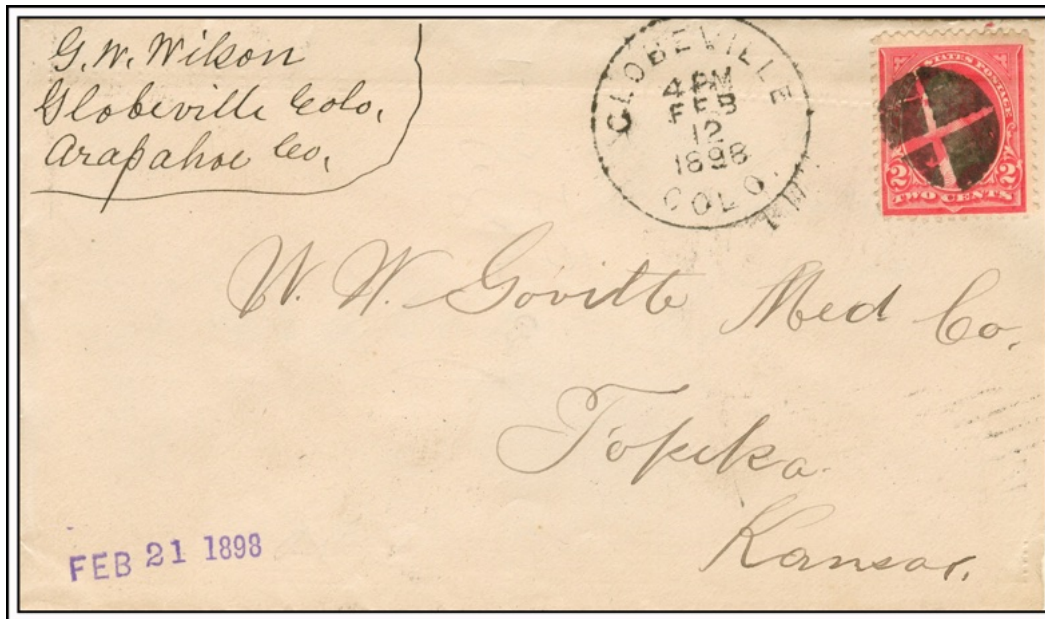 G. W. Wilson
Globeville Colo.
Arapahoe Co.
GLOBEVILLE
4 PM
FEB
12
1898
COLO.
STATES POSTAGE
2 2
TWO CENTS
W. W. Gavitte Med Co.
Topeka
Kansas.
FEB 21 1898